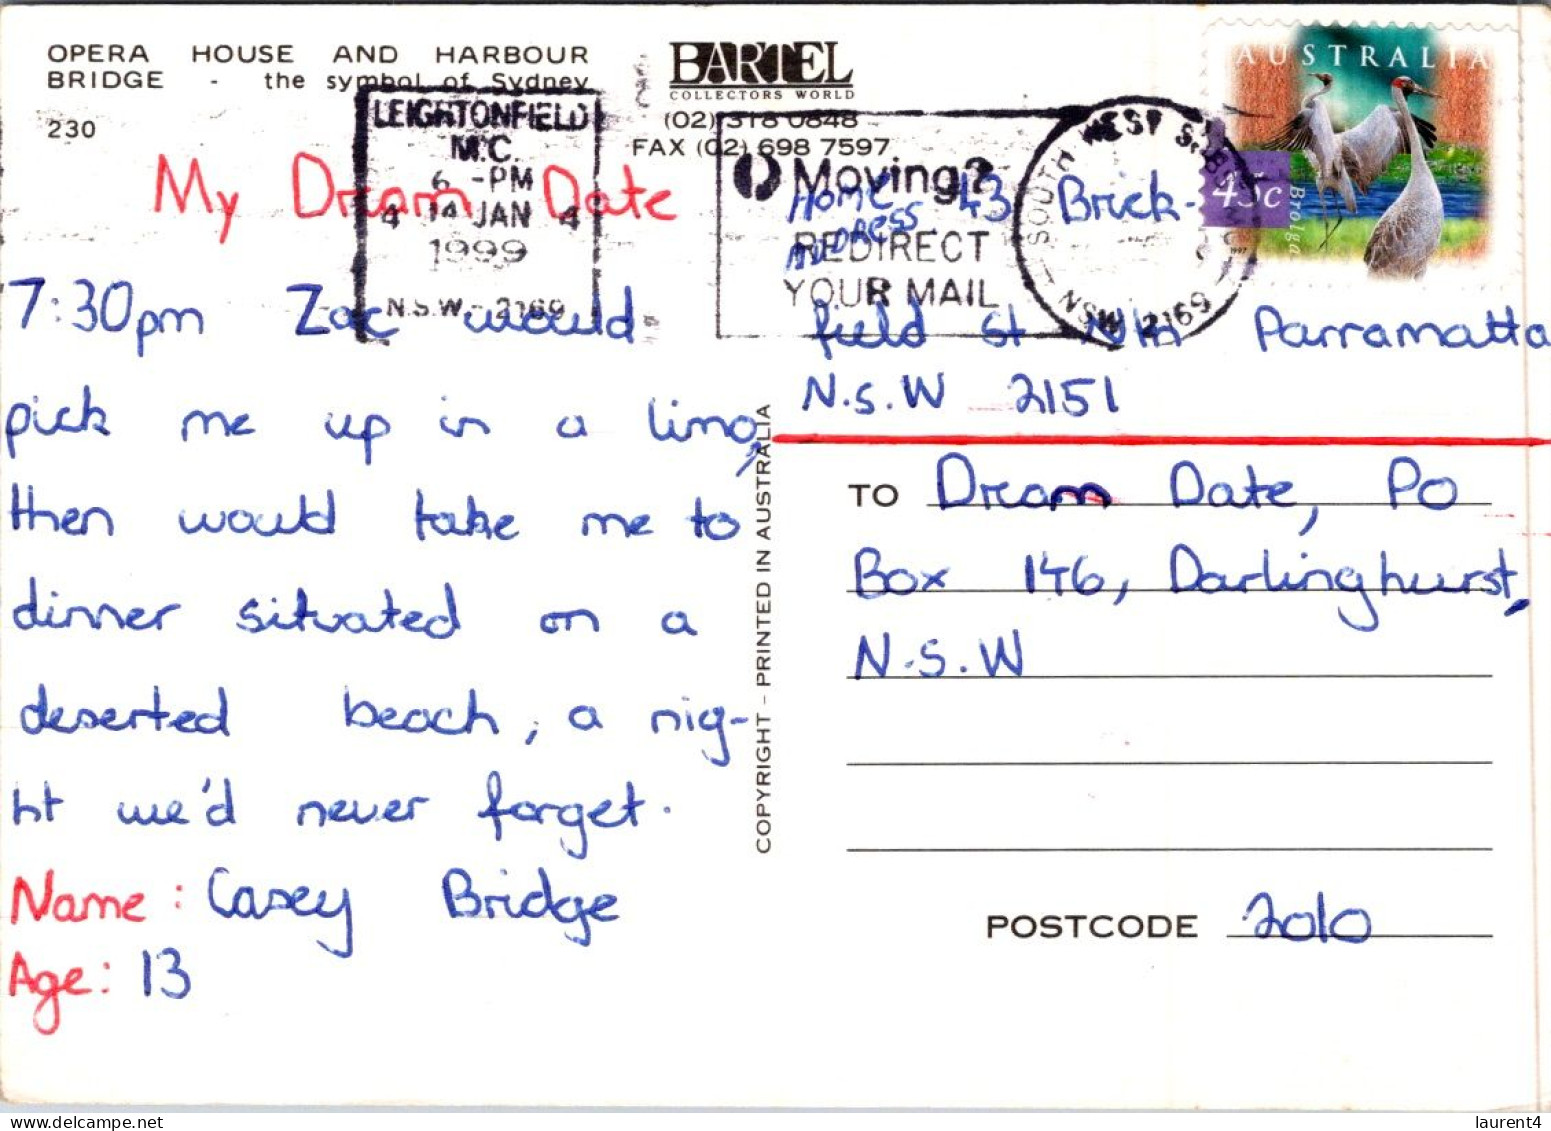 OPERA HOUSE AND HARBOUR
BRIDGE - the symbol of Sydney
230
BARTEL
COLLECTORS WORLD
(02) 318 0848
FAX (02) 698 7597
LEIGHTONFIELD
M.C.
6 -PM
4 14 JAN 4
1999
N.S.W.-2169
Moving?
REDIRECT
YOUR MAIL
SOUTH WEST
NSW 2169
AUSTRALIA
45c
Brolga
1997
My Dream Date
7:30pm Zac would
pick me up in a limo,
then would take me to
dinner situated on a
deserted beach, a nig-
ht we'd never forget.
Name: Casey Bridge
Age: 13
COPYRIGHT - PRINTED IN AUSTRALIA
HOME ADDRESS 43 Brick-
field St Nth Parramatta
N.S.W 2151
TO Dream Date, PO
Box 146, Darlinghurst,
N.S.W
POSTCODE 2010
laurent4